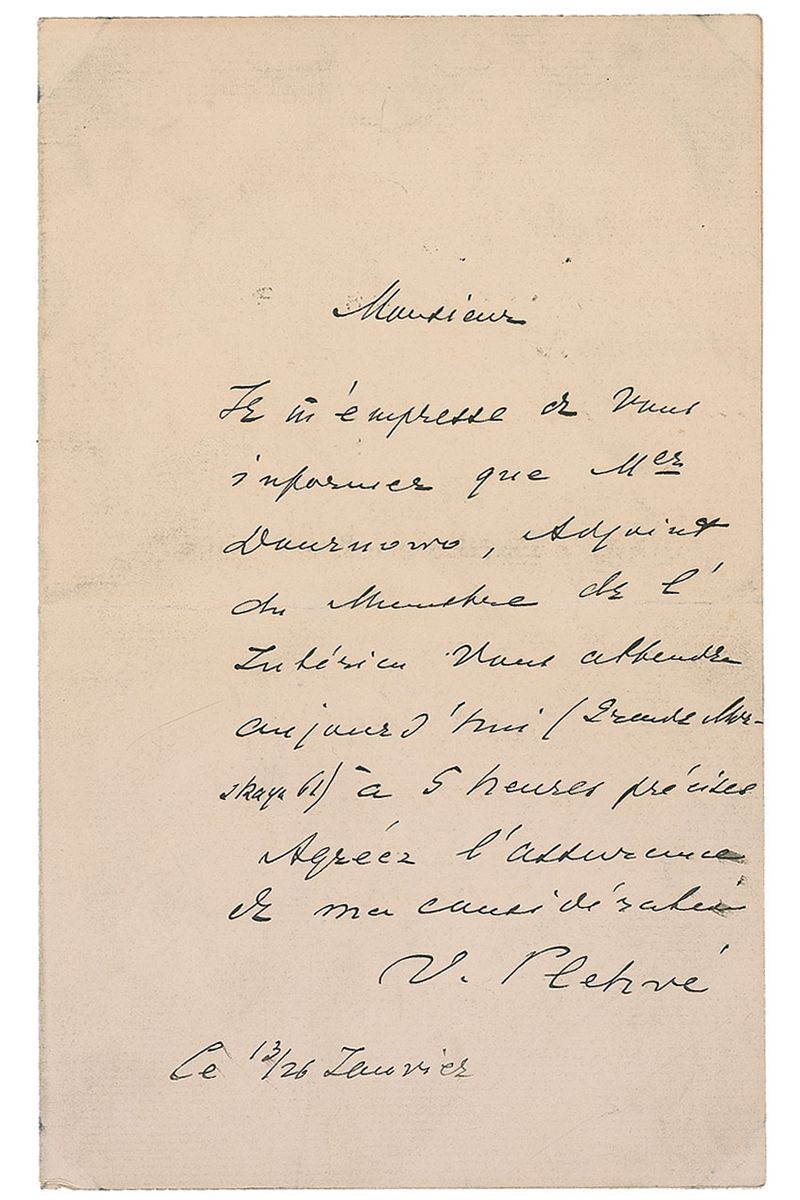 Monsieur
Je m'empresse de Vous
informer que M<sup>er</sup>
Dournowo, Adjoint
du Ministre de l'
Intérieu Vous attendra
aujourd'hui (Grande Mor-
skaya 61) à 5 heures précises
Agréez l'assurance
de ma considération
V. Plehvé
Ce 13/26 Janvier